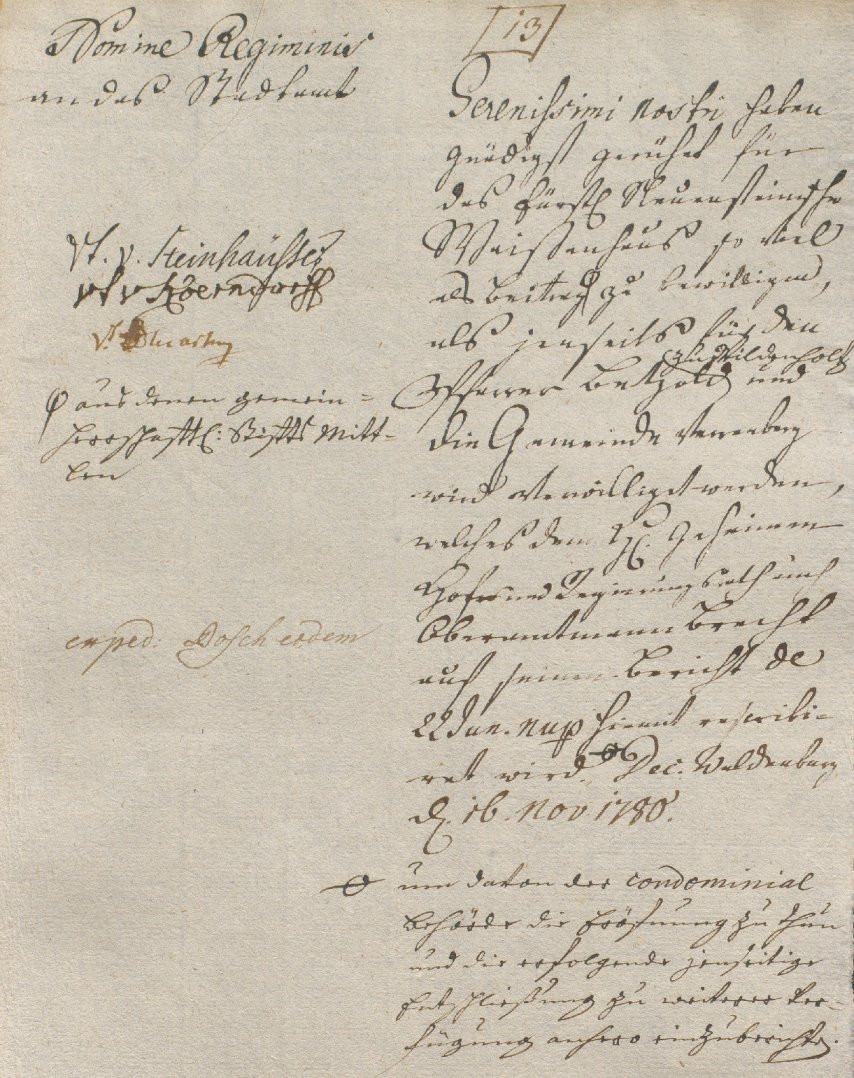 13
Nomine Regiminis
an das Stadtamt
Vt. v. Steinhäusser
vt v
Vt.
Φ aus denen gemein-
herrschaftl: Stifts Mitt-
len
exped: Dosch eodem
Serenissimi nostri haben
gnädigst geruhet für
das fürstl Neuensteinische
Waisenhaus so viel
als Beitrag zu bewilligen,
als jenseits für den
zu Wildenholz
Pfarrer Betzold und
die Gemeinde Verrenberg
wird verwilliget werden,
welches dem H. Geheimen
Hof- und Regierungsrath auch
Oberamtmann Brecht
auf seinen Bericht de
22 Jun. nup hiemit rescribi-
ret wird. Dec. Waldenburg
d. 16. Nov 1780.
um davon der condominial
Behörde die Eröfnung zu thun
und die erfolgende jenseitige
Entschließung zu weiterer Ver-
fügung anhero einzuberichten.